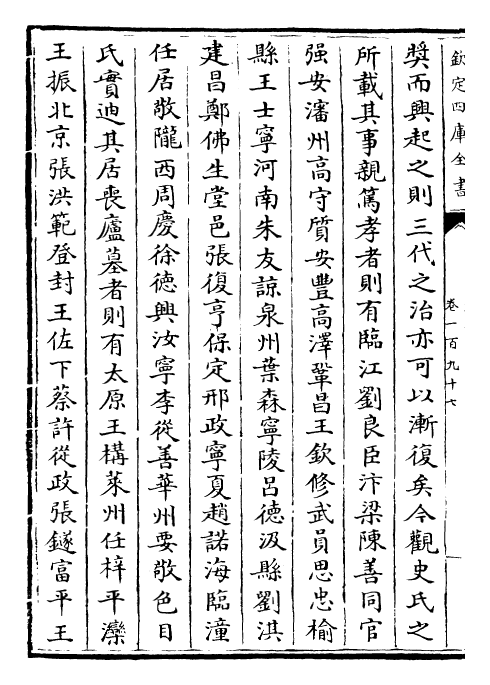 欽定四庫全書
卷一百九十七
奬而興起之則三代之治亦可以漸復矣今觀史氏之
所載其事親篤孝者則有臨江劉良臣汴梁陳善同官
强安瀋州高守質安豐高澤鞏昌王欽修武員思忠榆
縣王士寧河南朱友諒泉州葉森寧陵呂德汲縣劉淇
建昌鄭佛生堂邑張復亨保定邢政寧夏趙諾海臨潼
任居敬隴西周慶徐德興汝寧李從善華州要敬色目
氏實迪其居喪廬墓者則有太原王構萊州任梓平灤
王振北京張洪範登封王佐下蔡許從政張鐩富平王